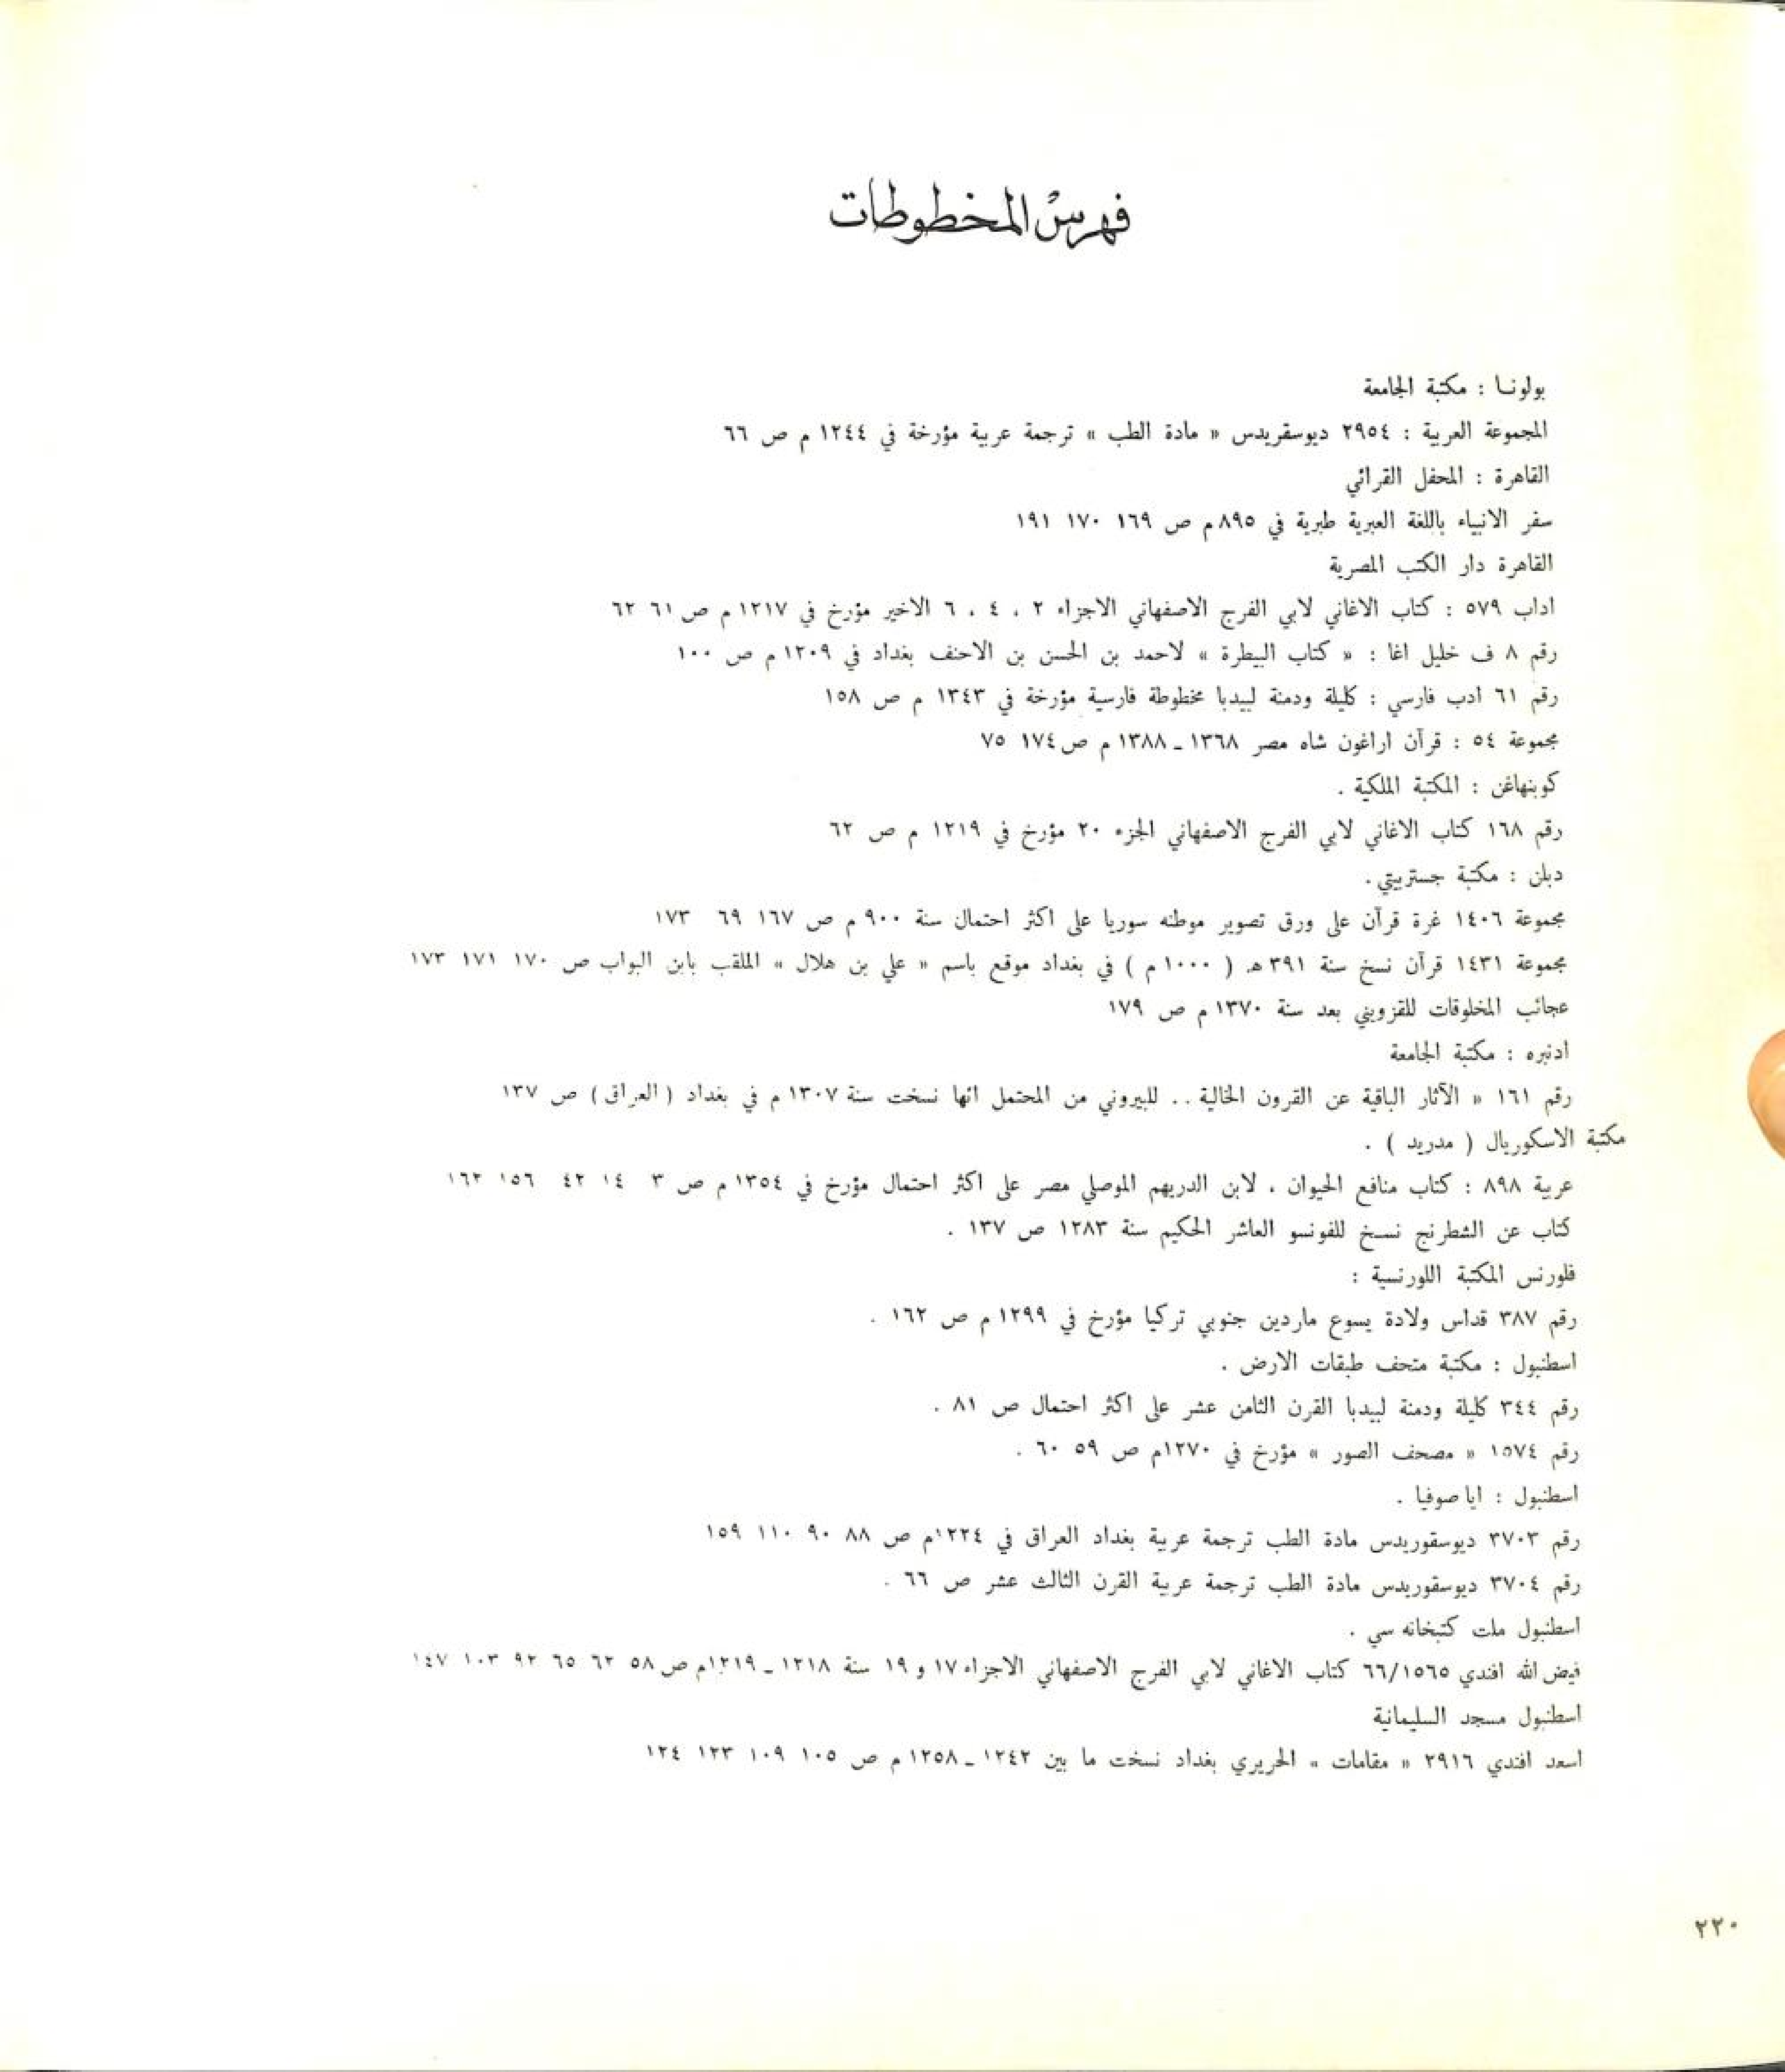 فهرس المخطوطات
بولونـا : مكتبة الجامعة
المجموعة العربية : ٢٩٥٤ ديوسقريدس « مادة الطب » ترجمة عربية مؤرخة في ١٢٤٤ م ص ٦٦
القاهرة : المحفل القرائي
سفر الانبياء باللغة العبرية طبرية في ٨٩٥م ص ١٦٩ ١٧٠ ١٩١
القاهرة دار الكتب المصرية
اداب ٥٧٩ : كتاب الاغاني لابي الفرج الاصفهاني الاجزاء ٢ ، ٤ ، ٦ الاخير مؤرخ في ١٢١٧ م ص ٦١ ٦٢
رقم ٨ ف خليل اغا : « كتاب البيطرة » لاحمد بن الحسن بن الاحنف بغداد في ١٢٠٩ م ص ١٠٠
رقم ٦١ ادب فارسي : كليلة ودمنة لبيدبا مخطوطة فارسية مؤرخة في ١٣٤٣ م ص ١٥٨
مجموعة ٥٤ : قرآن اراغون شاه مصر ١٣٦٨ ـ ١٣٨٨ م ص ١٧٤ ٧٥
كوبنهاغن : المكتبة الملكية .
رقم ١٦٨ كتاب الاغاني لابي الفرج الاصفهاني الجزء ٢٠ مؤرخ في ١٢١٩ م ص ٦٢
دبلن : مكتبة جستربيتي .
مجموعة ١٤٠٦ غرة قرآن على ورق تصوير موطنه سوريا على اكثر احتمال سنة ٩٠٠ م ص ١٦٧ ٦٩ ١٧٣
مجموعة ١٤٣١ قرآن نسخ سنة ٣٩١ هـ ( ١٠٠٠ م ) في بغداد موقع باسم « علي بن هلال » الملقب بابن البواب ص ١٧٠ ١٧١ ١٧٣
عجائب المخلوقات للقزويني بعد سنة ١٣٧٠ م ص ١٧٩
ادنبره : مكتبة الجامعة
رقم ١٦١ « الآثار الباقية عن القرون الخالية .. للبيروني من المحتمل انها نسخت سنة ١٣٠٧ م في بغداد ( العراق ) ص ١٣٧
مكتبة الاسكوريال ( مدريد ) .
عربية ٨٩٨ : كتاب منافع الحيوان ، لابن الدريهم الموصلي مصر على اكثر احتمال مؤرخ في ١٣٥٤ م ص ٣ ١٤ ٤٢ ١٥٦ ١٦٢
كتاب عن الشطرنج نسخ للفونسو العاشر الحكيم سنة ١٢٨٣ ص ١٣٧ .
فلورنس المكتبة اللورنسية :
رقم ٣٨٧ قداس ولادة يسوع ماردين جنوبي تركيا مؤرخ في ١٢٩٩ م ص ١٦٢ .
اسطنبول : مكتبة متحف طبقات الارض .
رقم ٣٤٤ كليلة ودمنة لبيدبا القرن الثامن عشر على اكثر احتمال ص ٨١ .
رقم ١٥٧٤ « مصحف الصور » مؤرخ في ١٢٧٠م ص ٥٩ ٦٠ .
اسطنبول : ايا صوفيا .
رقم ٣٧٠٣ ديوسقوريدس مادة الطب ترجمة عربية بغداد العراق في ١٢٢٤م ص ٨٨ ٩٠ ١١٠ ١٥٩
رقم ٣٧٠٤ ديوسقوريدس مادة الطب ترجمة عربية القرن الثالث عشر ص ٦٦ .
اسطنبول ملت كتبخانه سي .
فيض الله افندي ٦٦/١٥٦٥ كتاب الاغاني لابي الفرج الاصفهاني الاجزاء ١٧ و ١٩ سنة ١٢١٨ ـ ١٢١٩م ص ٥٨ ٦٢ ٦٥ ٩٢ ١٠٣ ١٤٧
اسطنبول مسجد السليمانية
اسعد افندي ٢٩١٦ « مقامات » الحريري بغداد نسخت ما بين ١٢٤٢ ـ ١٢٥٨ م ص ١٠٥ ١٠٩ ١٢٣ ١٢٤
٢٢٠